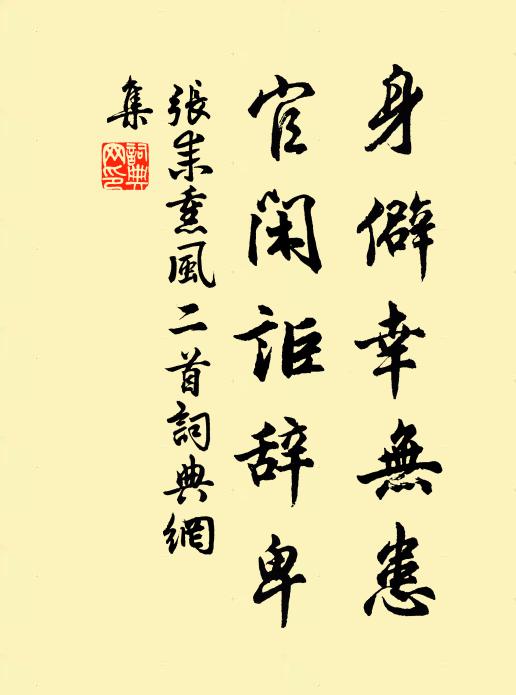 身僻幸無患
官閑詎辞卑
張耒熏風二首詞典網
集
詞典
网印